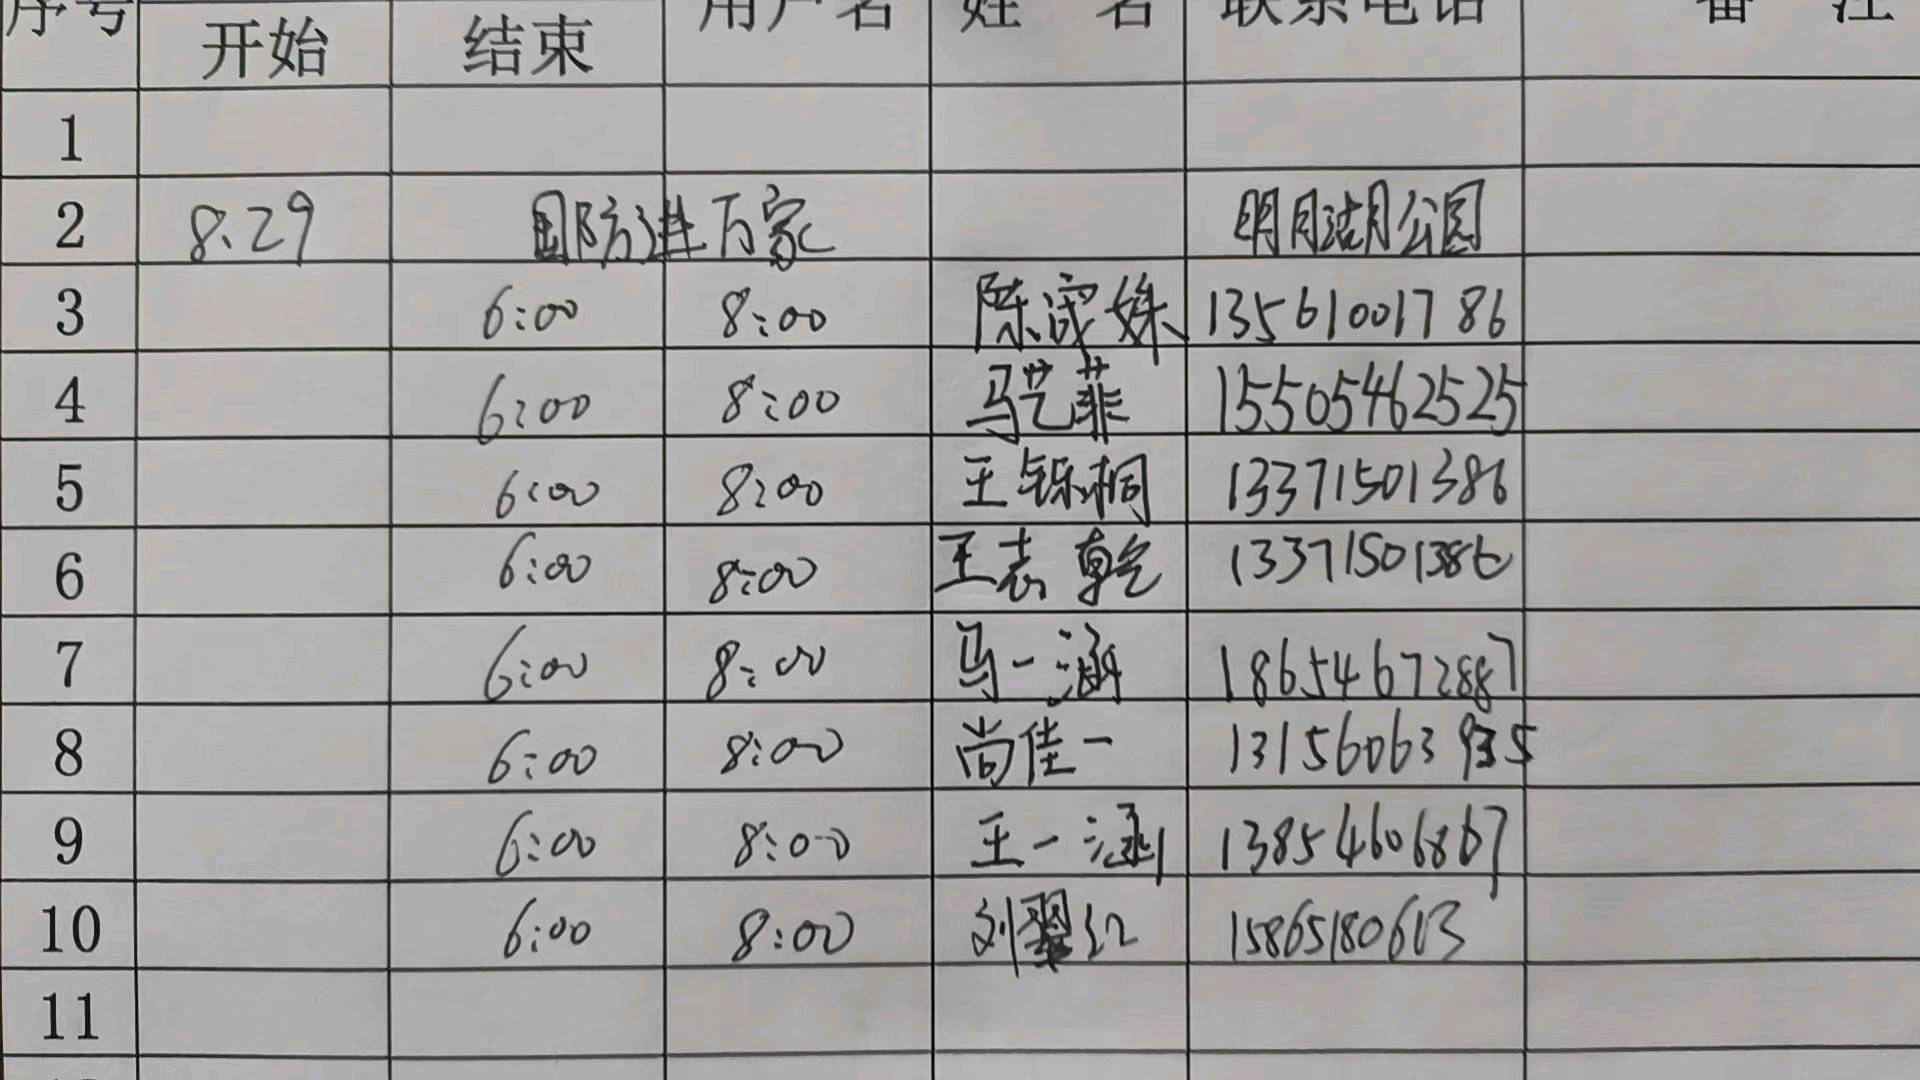 序号 开始 结束 用户名 姓 名 联系电话 备 注
1
2 8.29 国防进万家 明月湖公园
3 6:00 8:00 陈 姝 13561001786
4 6:00 8:00 马艺菲 15505462525
5 6:00 8:00 王铄桐 13371501386
6 6:00 8:00 王 乾 13371501386
7 6:00 8:00 马一涵 18654672887
8 6:00 8:00 尚佳一 13156063935
9 6:00 8:00 王一涵 13854606867
10 6:00 8:00 刘翠红 15865180613
11